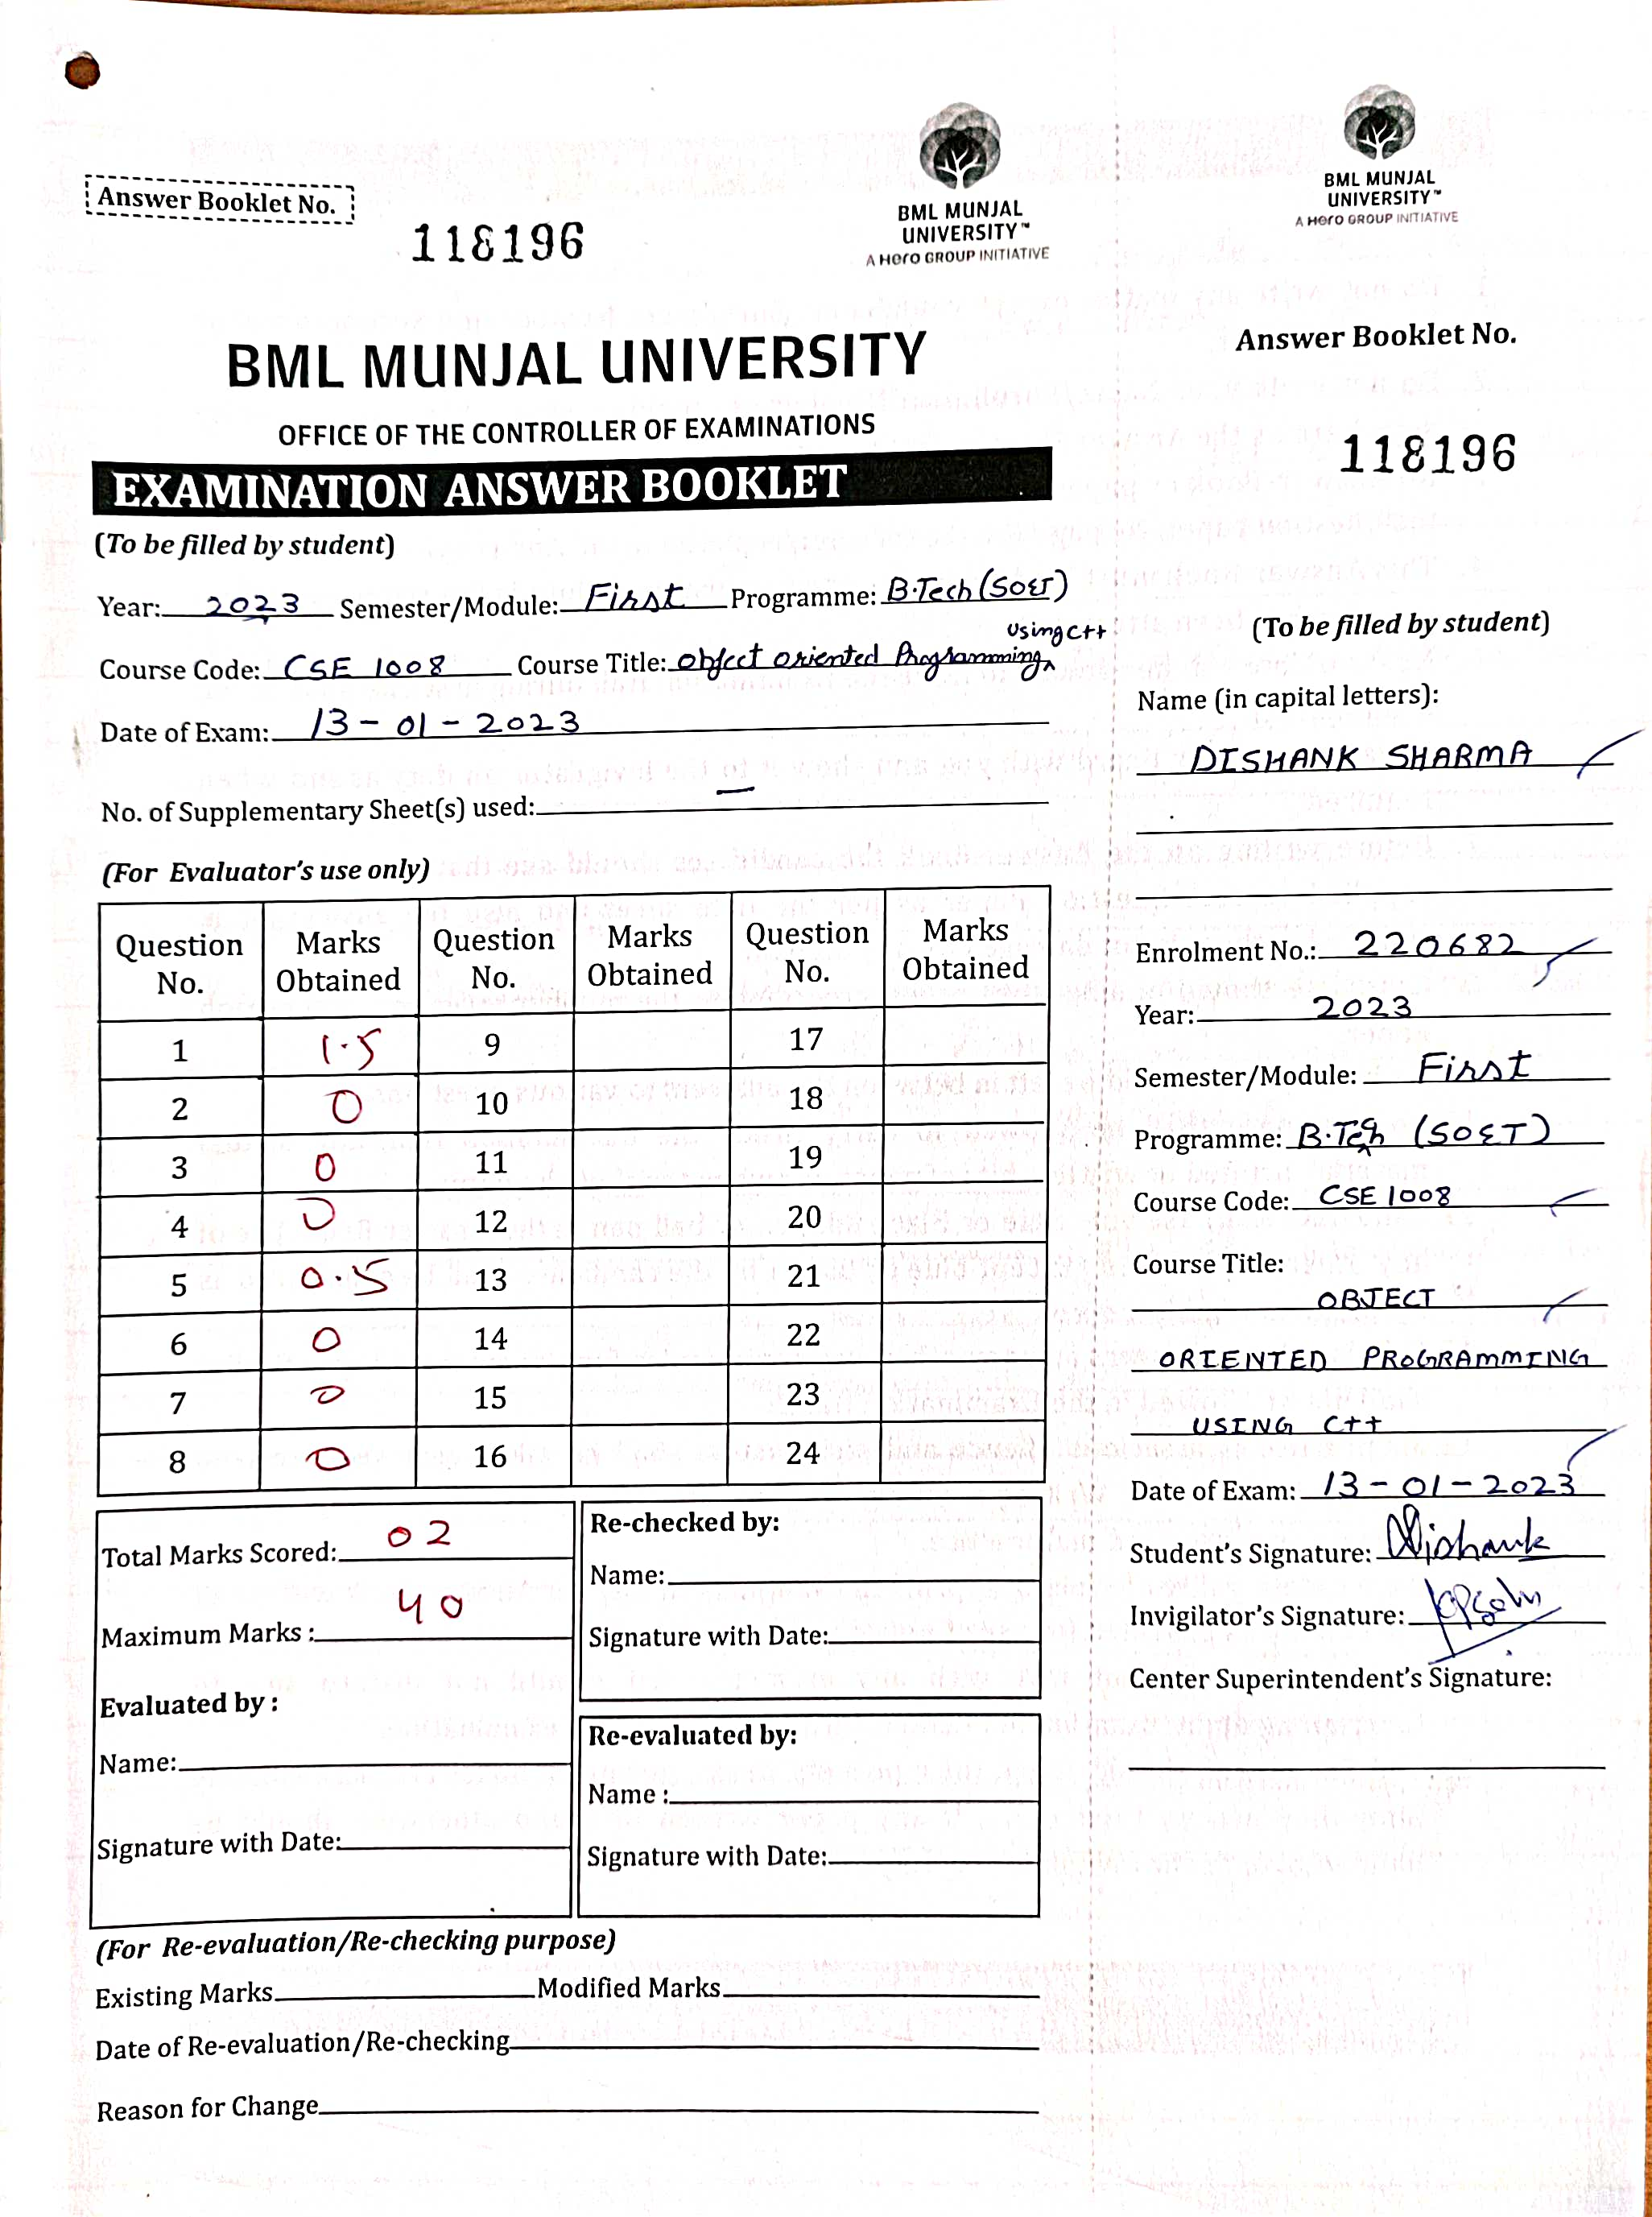 Answer Booklet No.
118196
BML MUNJAL
UNIVERSITY™
A Hero GROUP INITIATIVE
BML MUNJAL UNIVERSITY
OFFICE OF THE CONTROLLER OF EXAMINATIONS
EXAMINATION ANSWER BOOKLET
(To be filled by student)
Year: 2023 Semester/Module: First Programme: B.Tech (SOET)
using C++
Course Code: CSE 1008 Course Title: Object oriented Programming
Date of Exam: 13-01-2023
No. of Supplementary Sheet(s) used: —
(For Evaluator's use only)
Question No. Marks Obtained Question No. Marks Obtained Question No. Marks Obtained
1 1.5 9 17
2 0 10 18
3 0 11 19
4 0 12 20
5 0.5 13 21
6 0 14 22
7 0 15 23
8 0 16 24
Total Marks Scored: 02
Maximum Marks : 40
Evaluated by :
Name:
Signature with Date:
Re-checked by:
Name:
Signature with Date:
Re-evaluated by:
Name :
Signature with Date:
(For Re-evaluation/Re-checking purpose)
Existing Marks Modified Marks
Date of Re-evaluation/Re-checking
Reason for Change
BML MUNJAL
UNIVERSITY™
A Hero GROUP INITIATIVE
Answer Booklet No.
118196
(To be filled by student)
Name (in capital letters):
DISHANK SHARMA
Enrolment No.: 220682
Year: 2023
Semester/Module: First
Programme: B.Tech (SOET)
Course Code: CSE 1008
Course Title:
OBJECT
ORIENTED PROGRAMMING
USING C++
Date of Exam: 13-01-2023
Student's Signature: Dishank
Invigilator's Signature:
Center Superintendent's Signature: